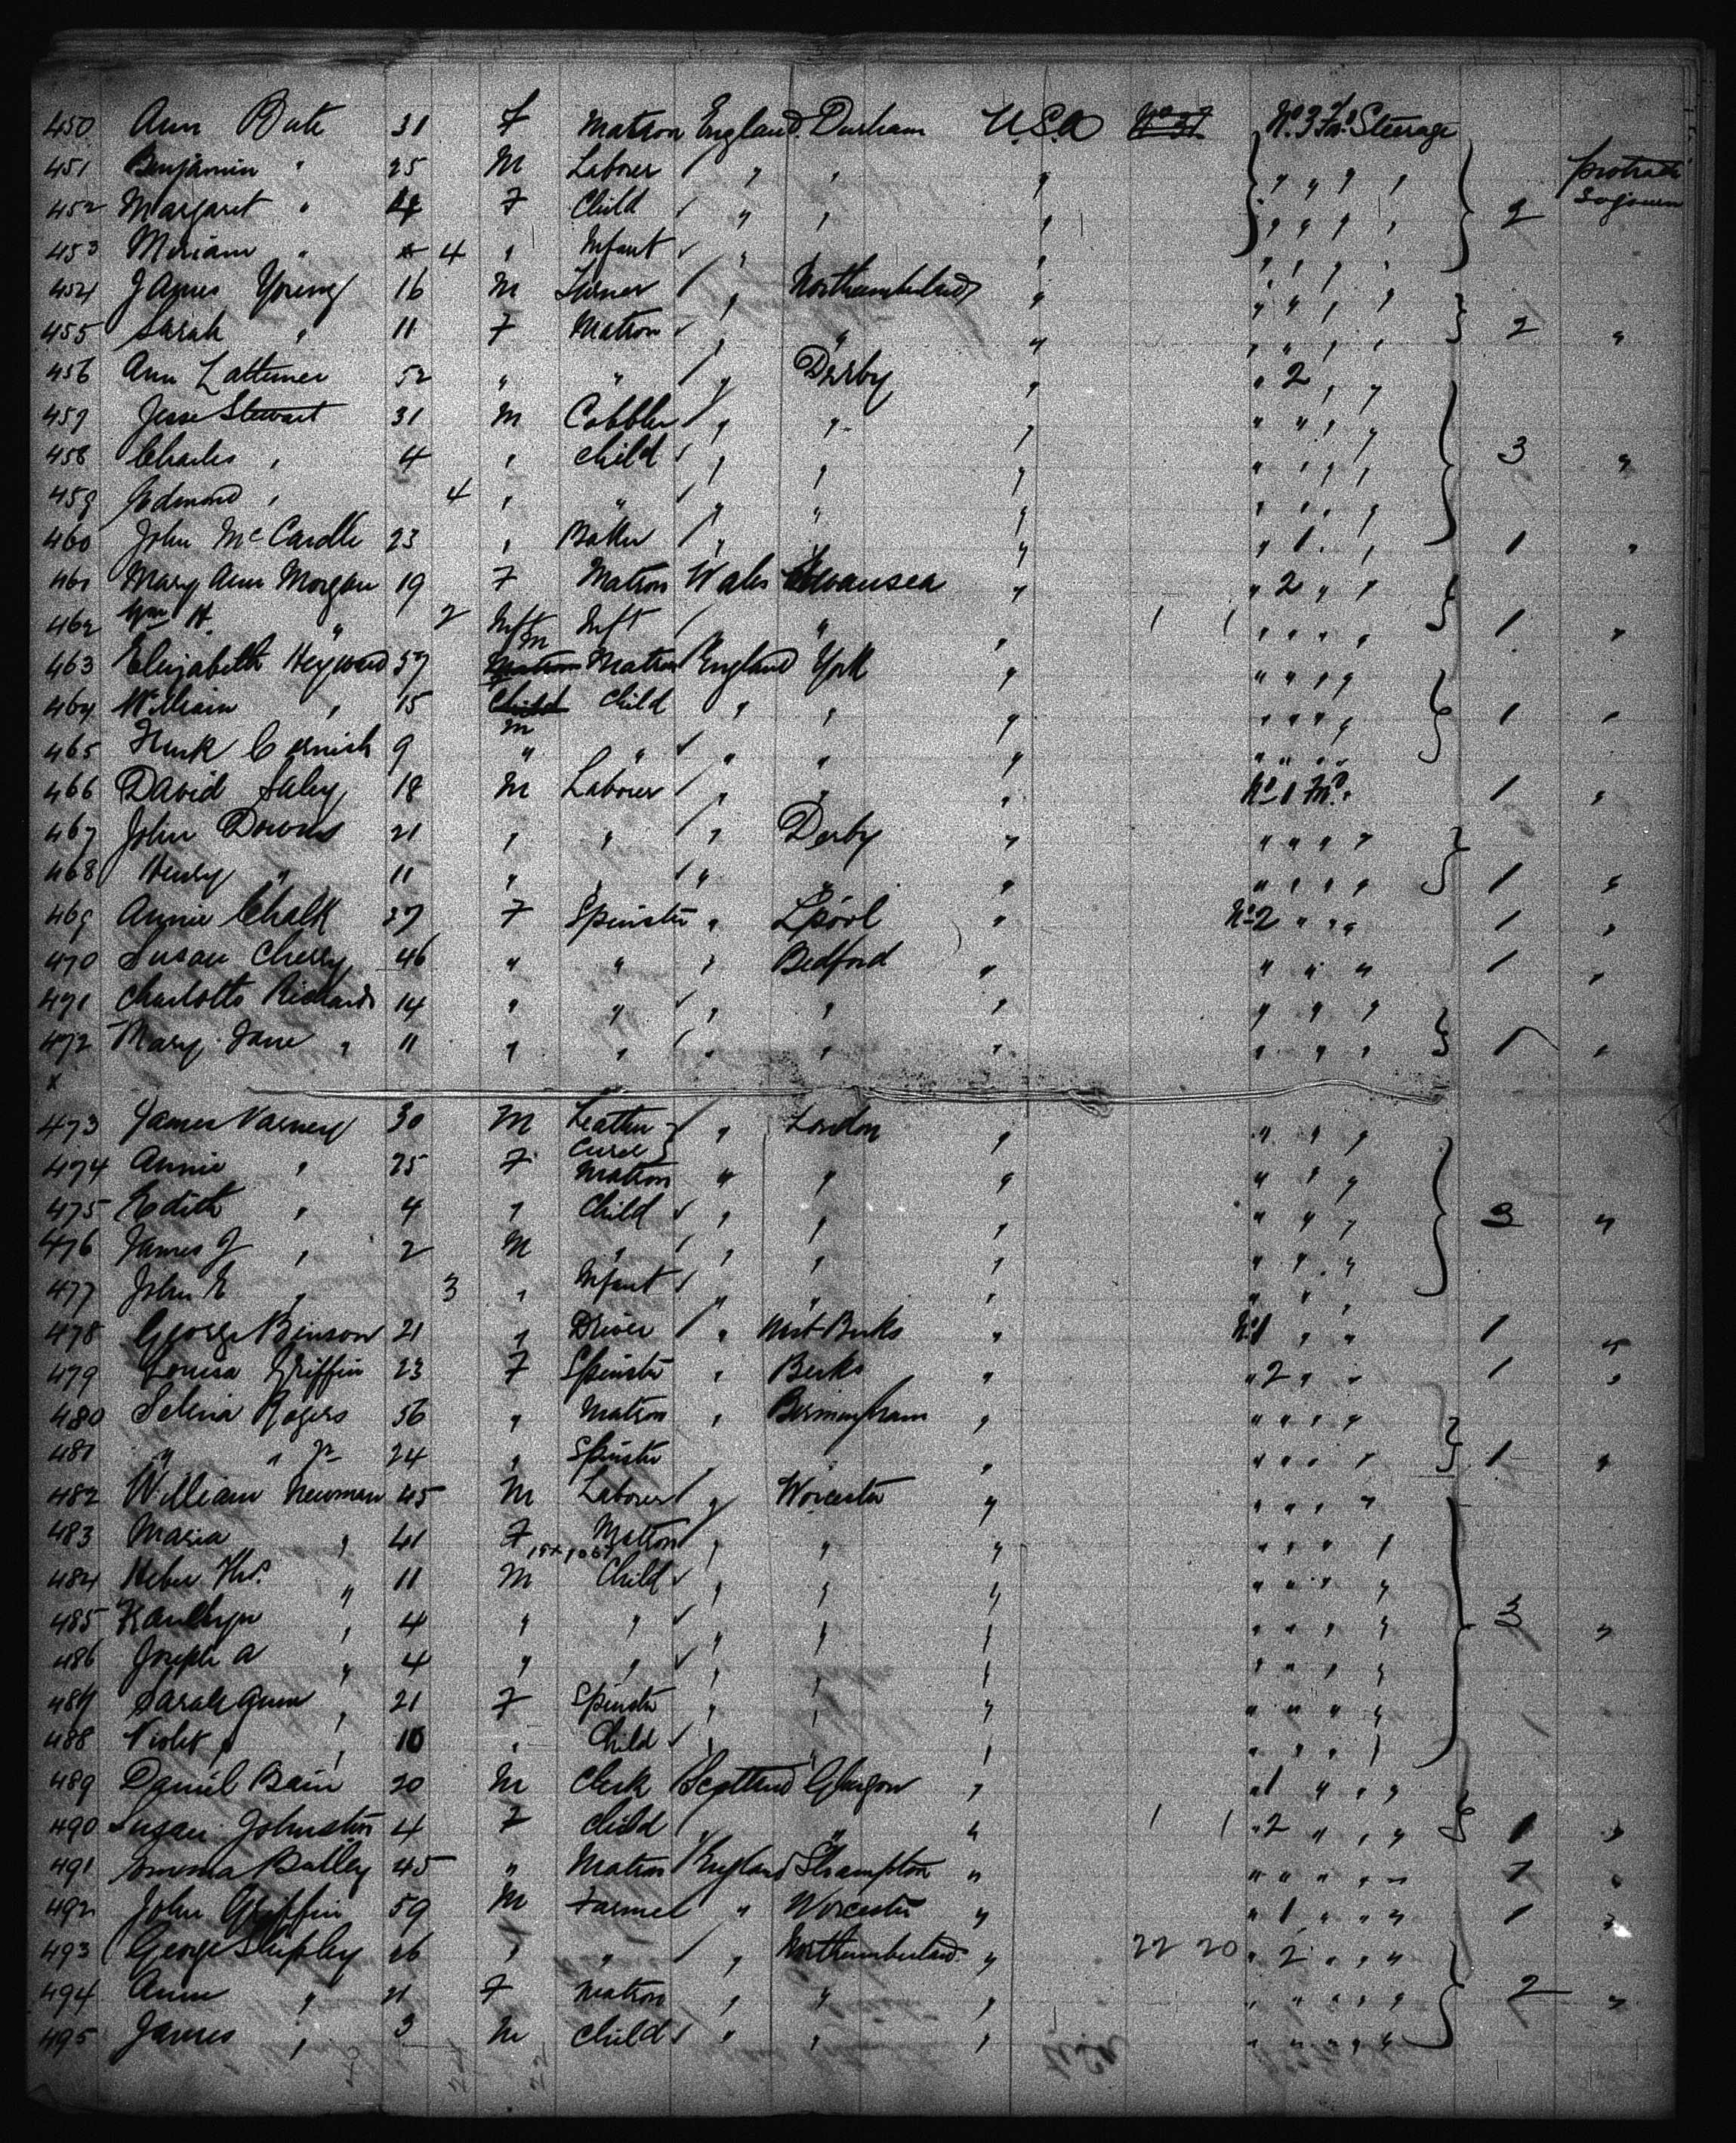 450 Ann Bate 31 F Matron England Durham U.S.A No 3 Steerage
451 Benjamin " 25 M Laborer / " " " " " " "
452 Margaret " 4 F Child / " " " " " " " 2 Sojourn
453 Miriam " 4 " Infant / " " " " " " "
454 James Young 16 M / " Northumberland " " " " "
455 Sarah " 11 F Matron / " " " " " " " 2 "
456 Ann Lattimer 52 " " / " Derby " " 2 " "
457 Jesse Stewart 31 M Cobbler / " " " " " " "
458 Charles " 4 " Child / " " " " " " " 3 "
459 Edmund " 4 " " / " " " " " " "
460 John McCardle 23 " Baker / " " " " 1 " " 1 "
461 Mary Ann Morgan 19 F Matron Wales Swansea " " 2 " "
462 Wm H. " 2 Inft M Inft / " " 1 1 " " " " 1 "
463 Elizabeth Heyward 57 Matron Matron England York " " " " "
464 William " 15 Child M Child " " " " " " " 1 "
465 Cornish 9 " " / " " " " " " "
466 David 18 M Laborer / " " " No 1 " 1 "
467 John Downs 21 " " / " Derby " " " " "
468 Henry " 11 " " / " " " " " " " 1 "
469 Annie Chalk 37 F Spinster " L'pool " No 2 " " " 1 "
470 Susan Cherry 46 " " " Bedford " " " " 1 "
471 Charlotte Richards 14 " " / " " " " " " "
472 Mary Jane " 11 " " / " " " " " " " 1 "
x
473 James Varney 30 M Leather / " London " " " "
Curer
474 Annie " 25 F Matron " " " " " "
475 Edith " 4 " Child / " " " " " " 3 "
476 James J " 2 M " / " " " " " "
477 John E " 3 " Infant / " " " " " "
478 George Binson 21 " Driver / " West Berks " No 1 " " 1 "
479 Louisa Griffin 23 F Spinster " Berks " " 2 " " 1 "
480 Selina Rogers 56 " Matron " Birmingham " " " " "
481 " " Jr 24 " Spinster " " " " " " " 1 "
482 William Newman 45 M Laborer / " Worcester " " " " "
483 Maria " 41 F Matron / " " " " " " "
484 Heber Thos. " 11 M Child / " " " " " " "
485 " 4 " " / " " " " " " " 3 "
486 Joseph A " 4 " " / " " " " " " "
487 Sarah Ann " 21 F Spinster " " " " " " "
488 Violet " 10 " Child / " " " " " " "
489 Daniel Bain 20 M Clerk Scotland Glasgow " " 1 " " "
490 Susan Johnston 4 F Child / " " " 1 1 " 2 " " " 1 "
491 Emma Bailey 45 " Matron England S'hampton " " " " " " 1 "
492 John Griffin 59 M Farmer " Worcester " " 1 " " " 1 "
493 George Shipley 26 " " / " Northumberland " 22 20 " 2 " " "
494 Ann " 21 F Matron " " " " " " " " 2 "
495 James " 3 M Child / " " " " " " " "